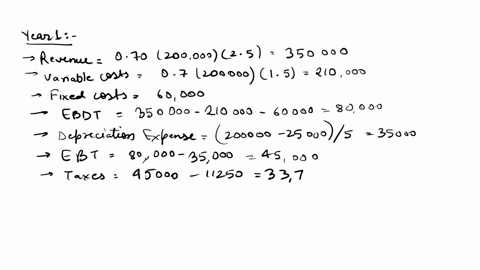 Year 1:-
→ Revenue = 0.70 (200,000)(2.5) = 350 000
→ Variable costs = 0.7 (200000)(1.5) = 210,000
→ Fixed costs = 60,000
→ EBDT = 350 000 - 210 000 - 60000 = 80,000
→ Depreciation Expense = (200000 - 25000)/5 = 35000
→ EBT = 80,000 - 35,000 = 45,000
→ Taxes = 45000 - 11250 = 33,7